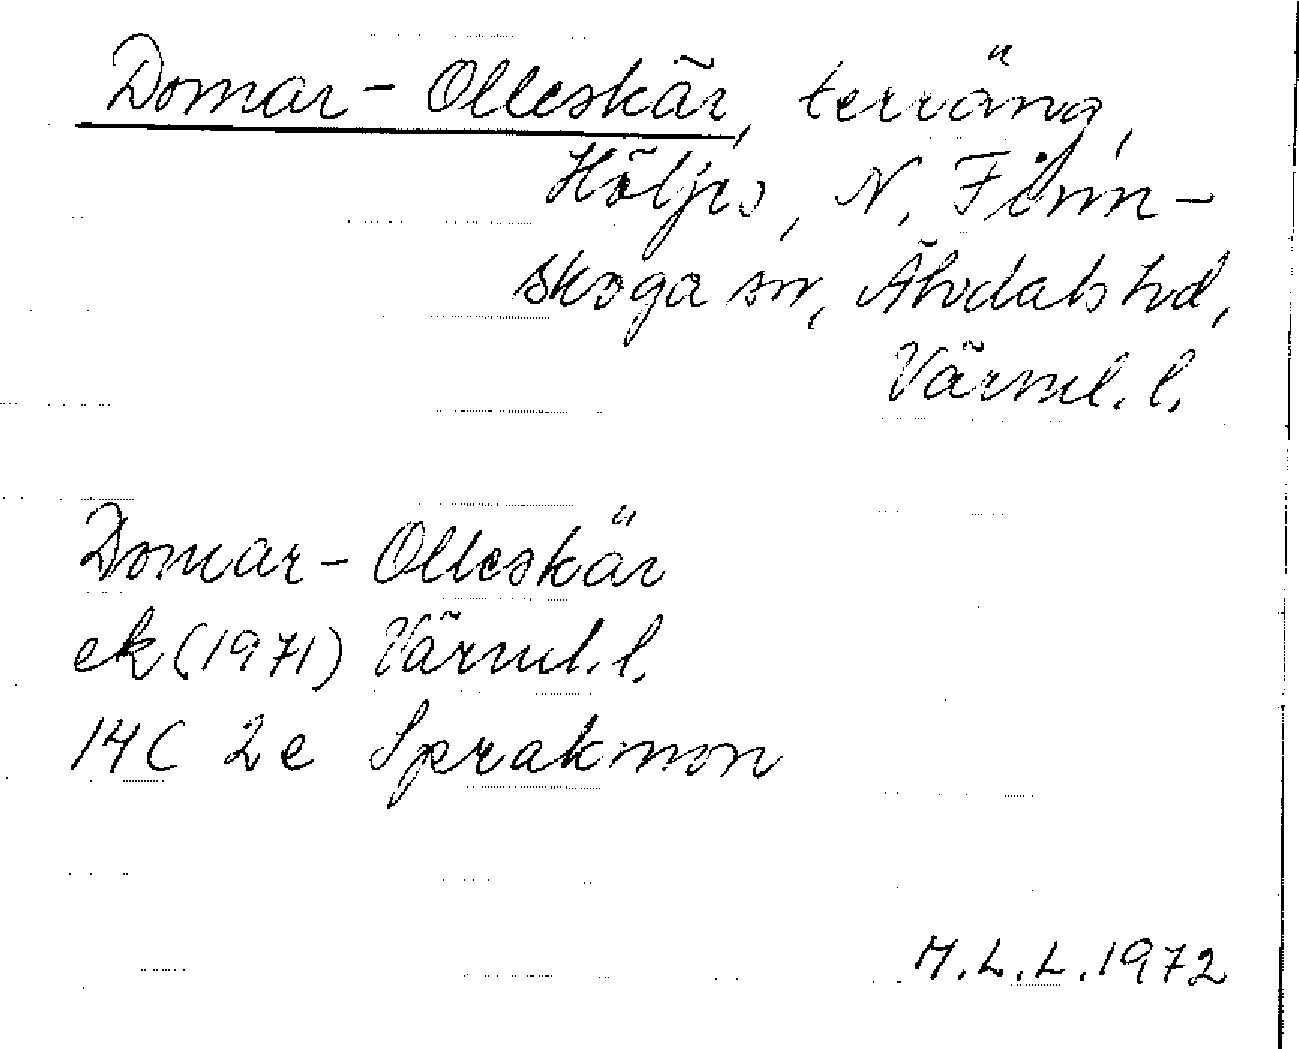 Domar-Olleskär, terräng,
Höljes, N. Finn-
skoga sn, Älvdals hd,
Värml. l.
Domar-Olleskär
ek (1971) Värml. l.
14C 2e Sprakmon
M.L.L. 1972